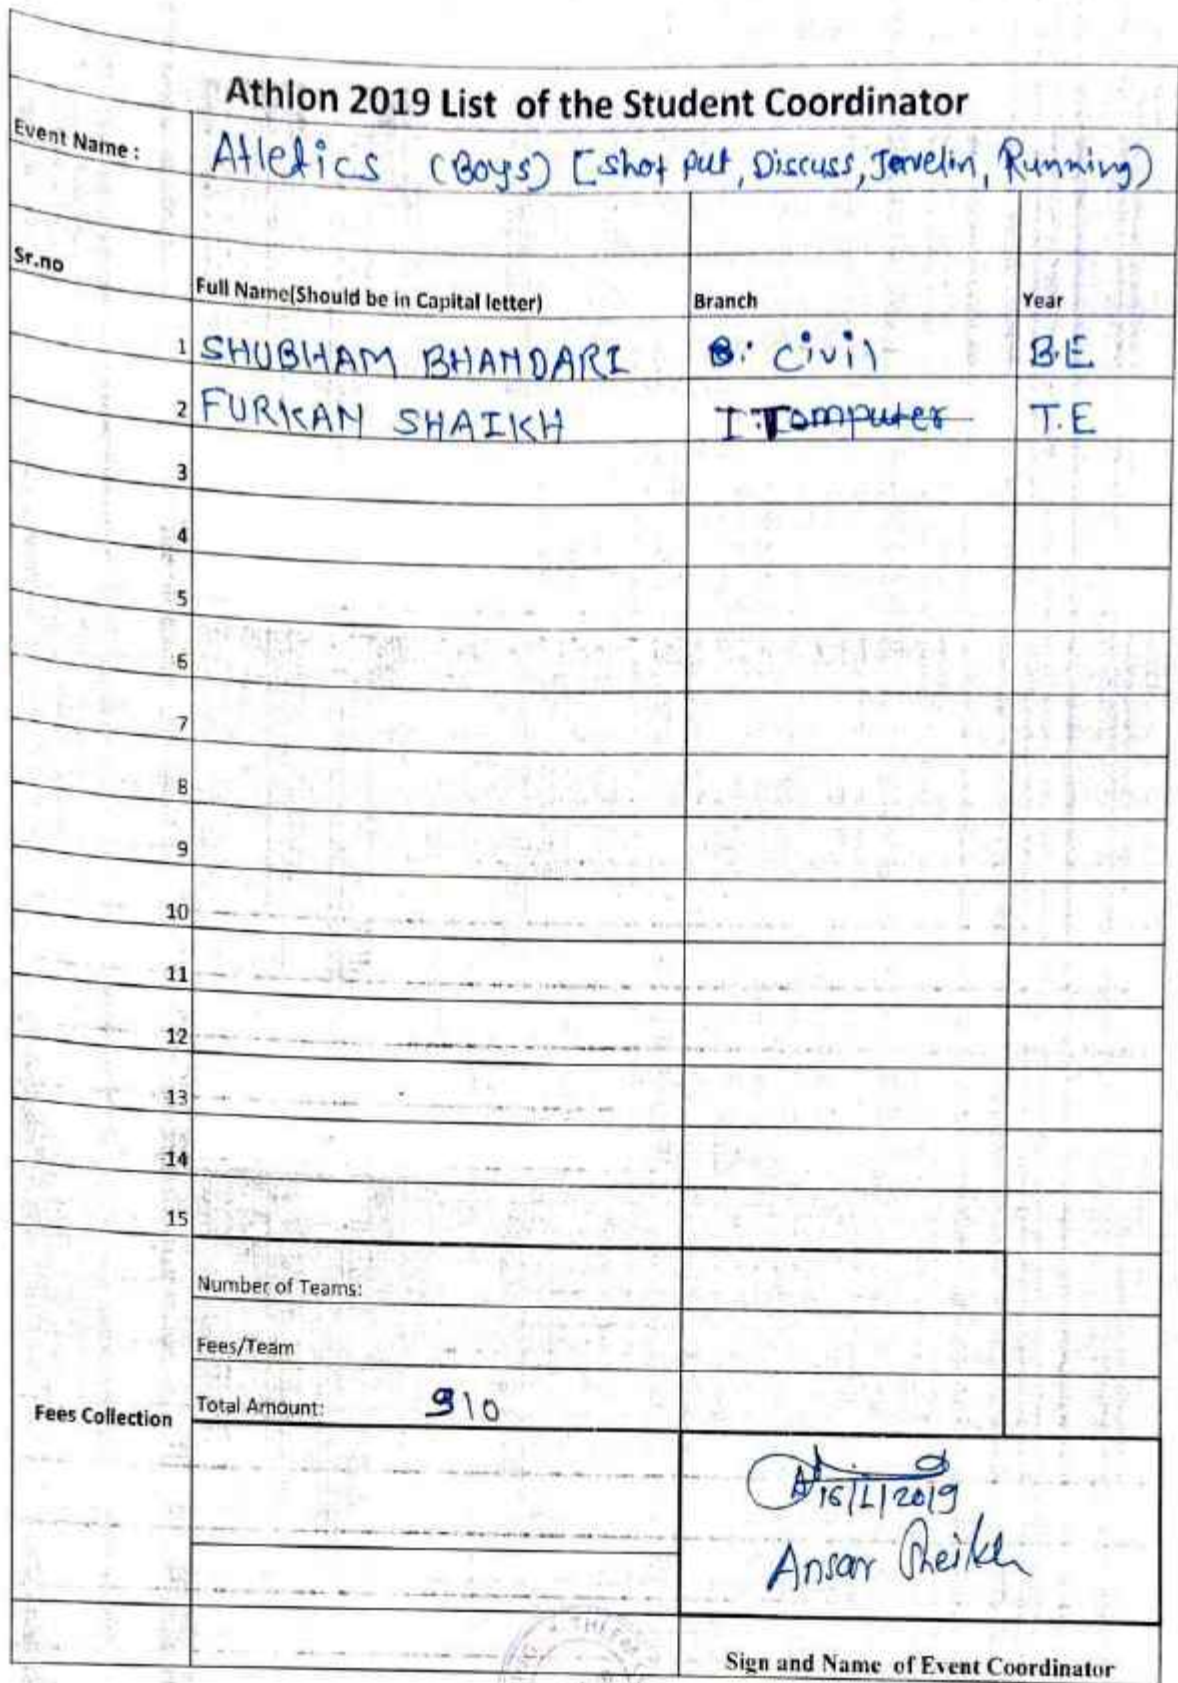 Athlon 2019 List of the Student Coordinator
Event Name : Atletics (Boys) [Shot put, Discuss, Javelin, Running)
Sr.no Full Name(Should be in Capital letter) Branch Year
1 SHUBHAM BHANDARI Civil B.E
2 FURKAN SHAIKH I.T Computer T.E
3
4
5
6
7
8
9
10
11
12
13
14
15
Number of Teams:
Fees/Team
Fees Collection Total Amount: 910
16/1/2019
Ansar Sheikh
Sign and Name of Event Coordinator